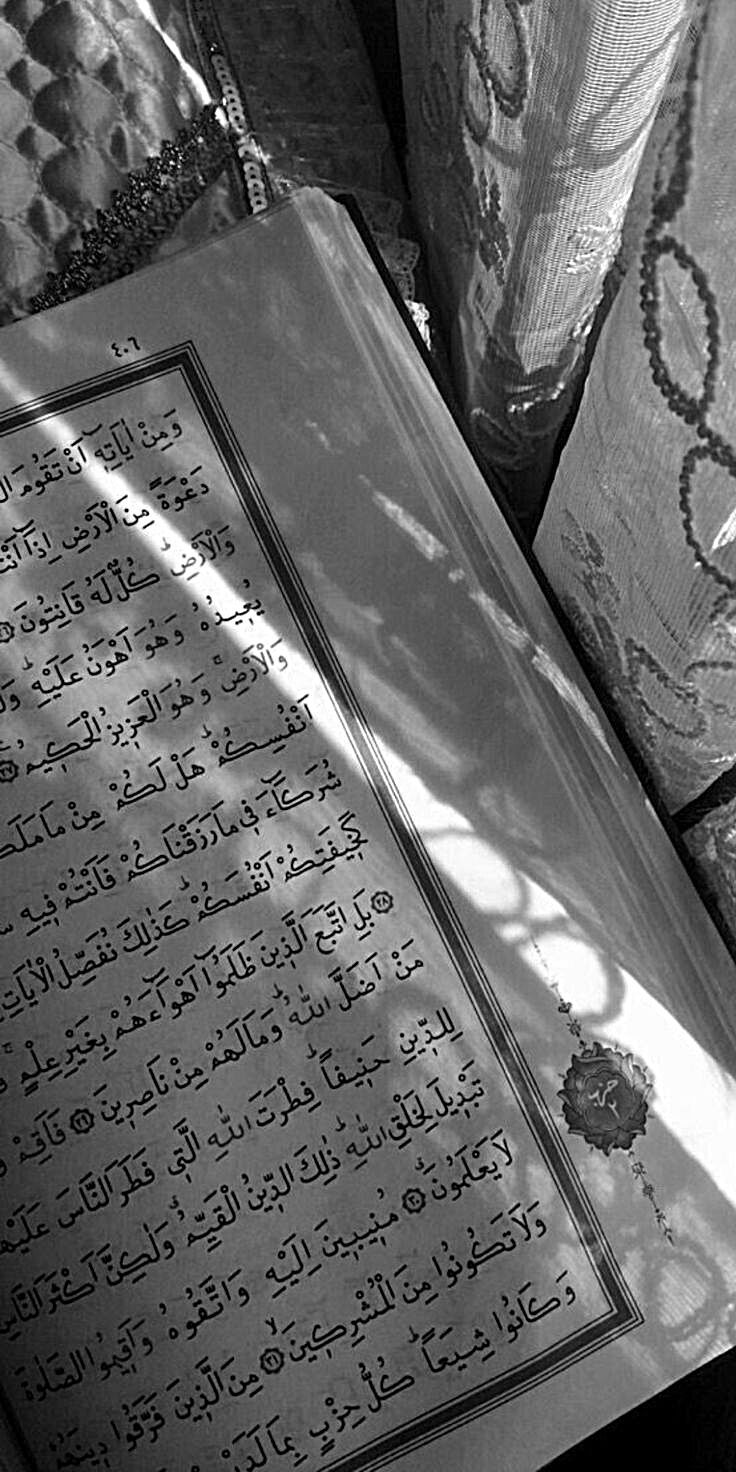 ٤٠٦
وَمِنْ اٰيَاتِه۪ٓ اَنْ تَقُومَ
دَعْوَةً مِنَ الْاَرْضِ اِذَٓا
وَالْاَرْضِۜ كُلٌّ لَهُ قَانِتُونَ ﴿٢٦﴾
يُع۪يدُهُ وَهُوَ اَهْوَنُ عَلَيْهِۜ
وَالْاَرْضِۚ وَهُوَ الْعَز۪يزُ الْحَك۪يمُ ﴿٢٧﴾
اَنْفُسِكُمْۜ هَلْ لَكُمْ مِنْ مَا
شُرَكَٓاءَ ف۪ي مَا رَزَقْنَاكُمْ فَاَنْتُمْ ف۪يهِ
كَخ۪يفَتِكُمْ اَنْفُسَكُمْۜ كَذٰلِكَ نُفَصِّلُ الْاٰيَاتِ
﴿٢٨﴾ بَلِ اتَّبَعَ الَّذ۪ينَ ظَلَمُٓوا اَهْوَٓاءَهُمْ بِغَيْرِ عِلْمٍۚ
مَنْ اَضَلَّ اللّٰهُۜ وَمَا لَهُمْ مِنْ نَاصِر۪ينَ ﴿٢٩﴾ فَاَقِمْ
لِلدّ۪ينِ حَن۪يفاًۜ فِطْرَتَ اللّٰهِ الَّت۪ي فَطَرَ النَّاسَ
تَبْد۪يلَ لِخَلْقِ اللّٰهِۜ ذٰلِكَ الدّ۪ينُ الْقَيِّمُۗ وَلٰكِنَّ اَكْثَرَ النَّاسِ
لَا يَعْلَمُونَۗ ﴿٣٠﴾ مُن۪يب۪ينَ اِلَيْهِ وَاتَّقُوهُ وَاَق۪يمُوا الصَّلٰوةَ
وَلَا تَكُونُوا مِنَ الْمُشْرِك۪ينَۙ ﴿٣١﴾ مِنَ الَّذ۪ينَ فَرَّقُوا د۪ينَهُمْ
وَكَانُوا شِيَعاًۜ كُلُّ حِزْبٍ بِمَا
حزب